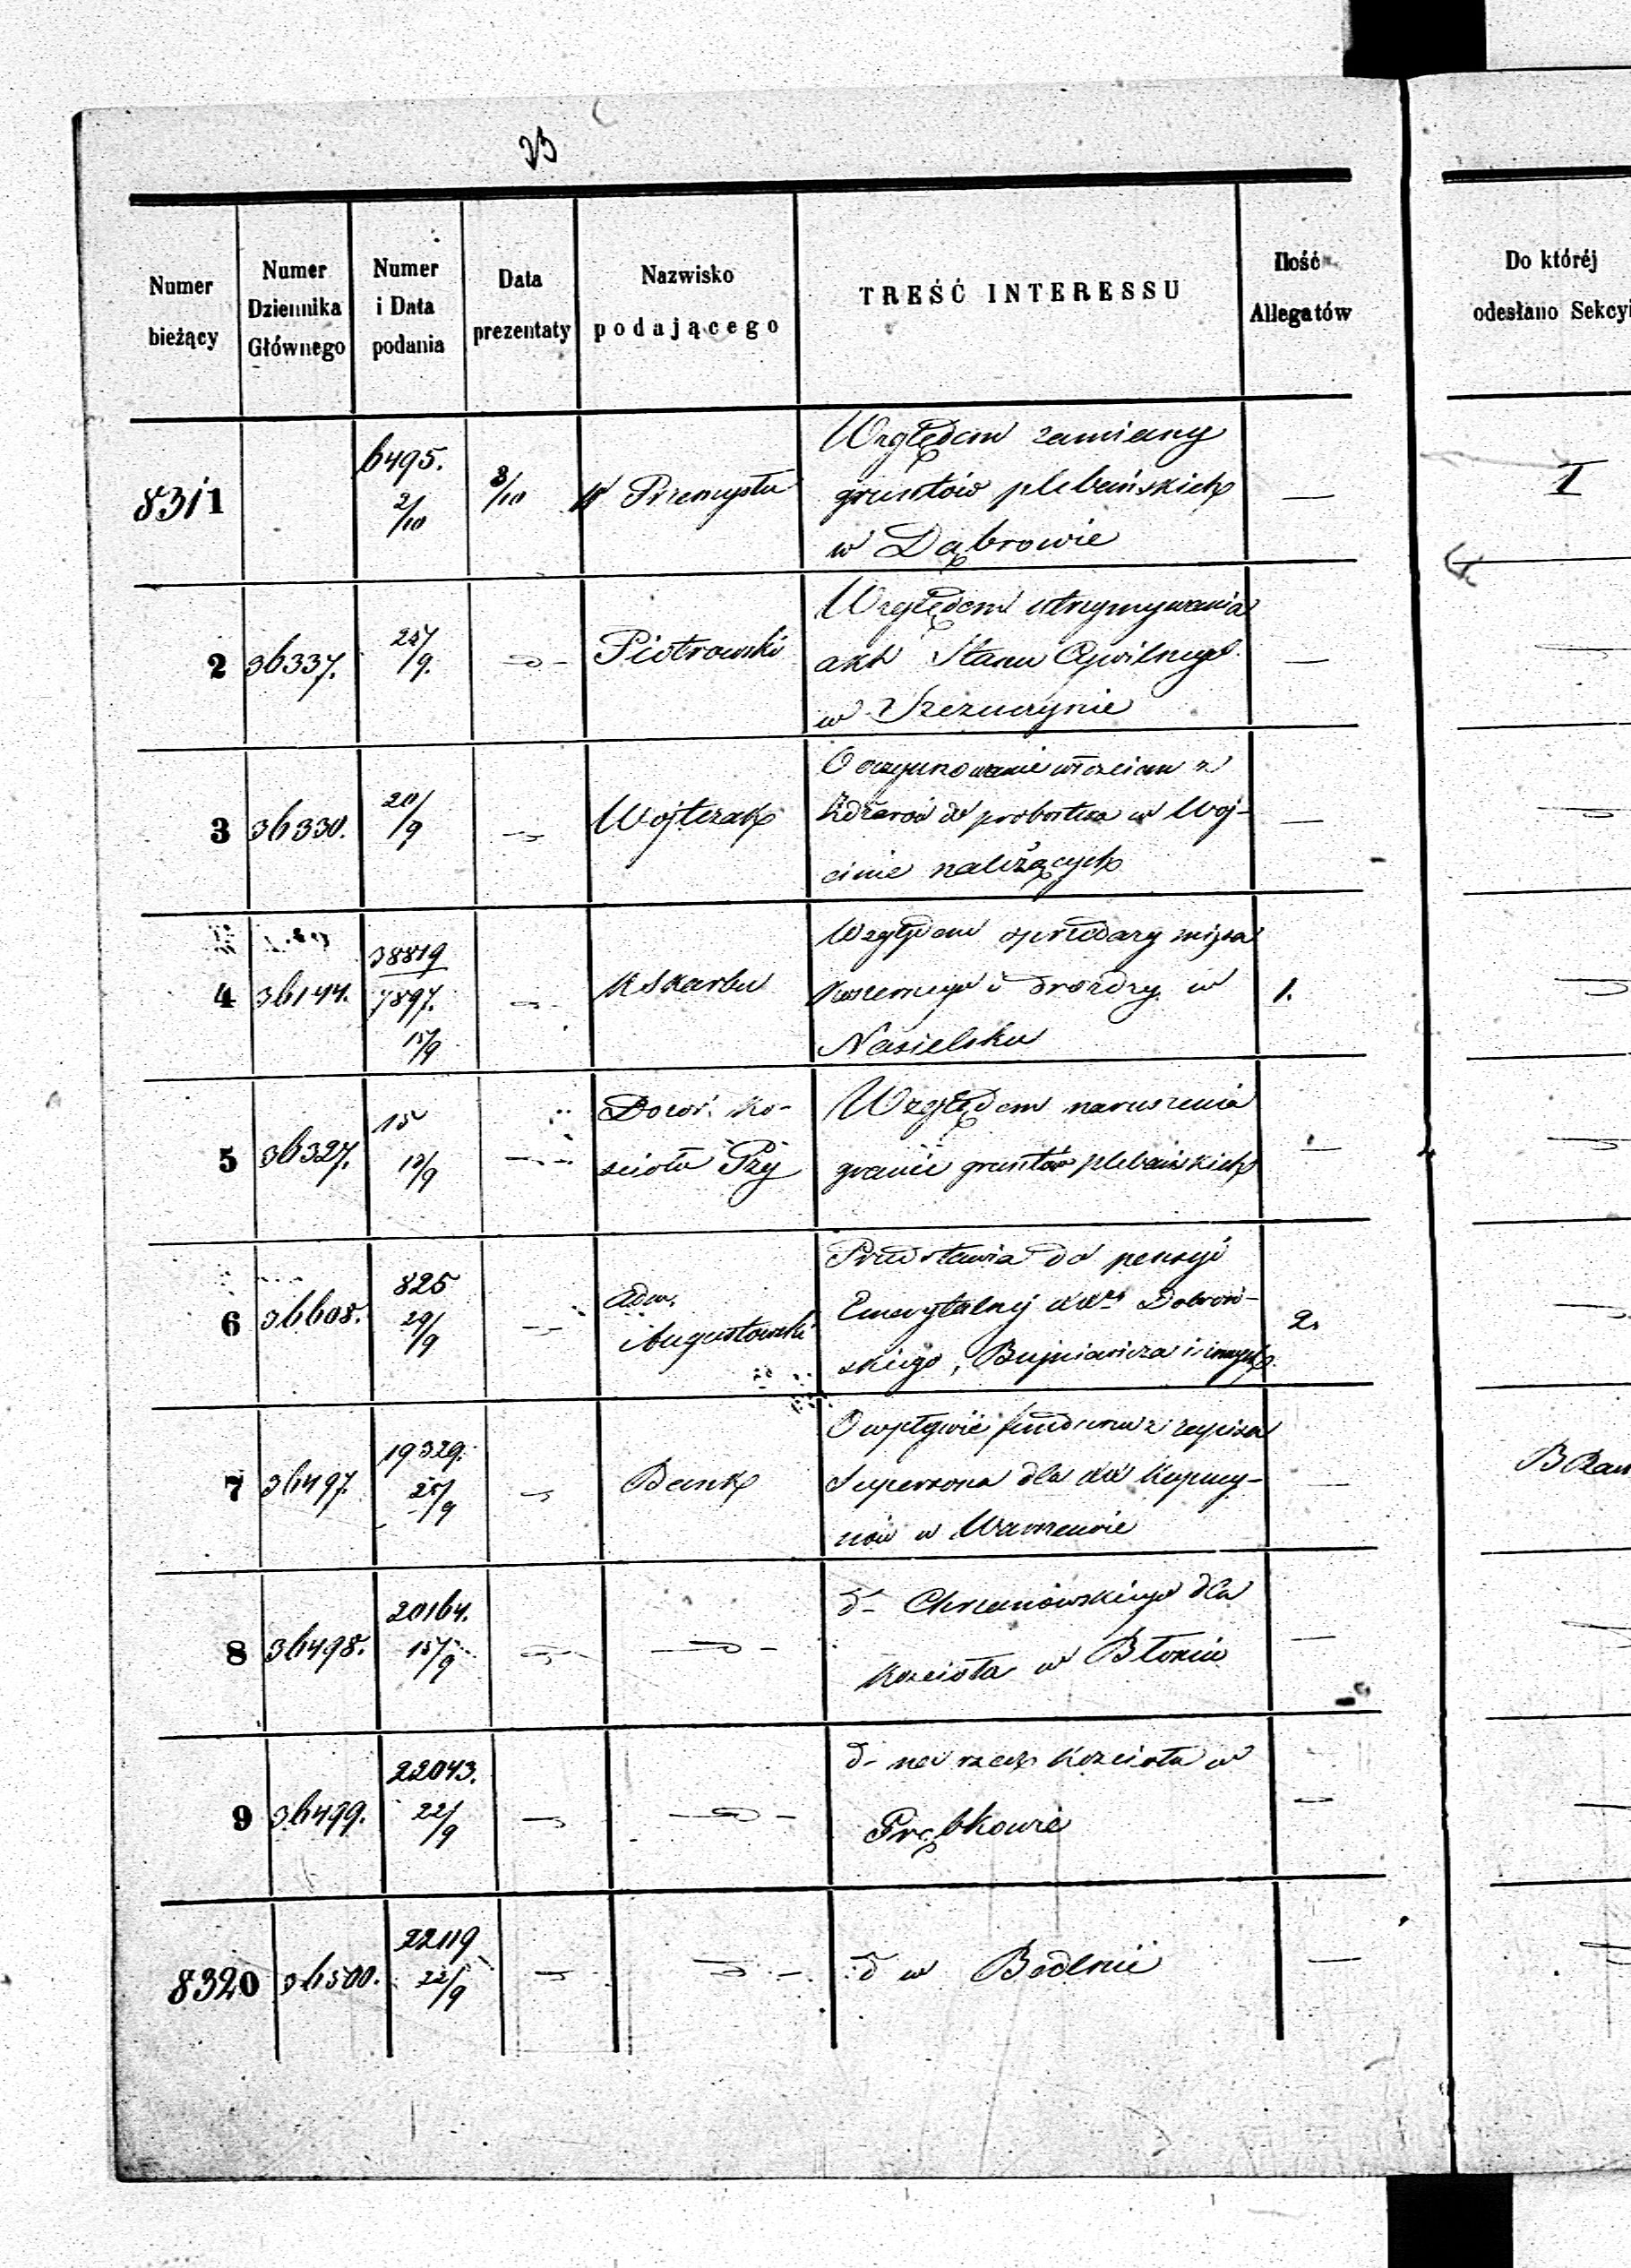 23
Numer bieżący
Numer Dziennika Głównego
Numer i Data podania
Data prezentaty
Nazwisko podającego
TREŚĆ INTERESSU
Ilość Allegatów
Do któréj odesłano Sekcyi
8311 6495. 2/10 3/10 Przemysłu — I
Względem zamiany
gruntów plebańskich
w Dąbrowie
2 36337. 25/9. Piotrowski —
Względem utrzymywania
akt Stanu Cywilnego
w Szczuczynie
3 36330. 20/9 Wójtczak —
O oczynszowanie włościan z
do probostwa w Woj-
cinie należących
4 36144. 38819 7897. 15/9 K Skarbu 1.
Względem sprzedaży mięsa
koszernego i drożdży w
Nasielsku
5 36327. 15 13/9 Dozór Ko-
ścioła —
Względem naruszenia
granic gruntów plebańskich
6 36608. 825 29/9 Adm. Augustowski 2.
Przedstawia do pensyi
Emerytalnej
skiego, i innych
7 36497. 19329. 25/9 Bank —
O wpływie funduszu z zapisu
dla Kapucy-
nów w Warszawie
8 36498. 20164. 15/9 —
d- Chrzanowskiego dla
Kościoła w Błoniu
9 36499. 22043. 22/9 —
d- na rzecz Kościoła w
Prębkowie
8320 36500. 22119 22/9 —
d w